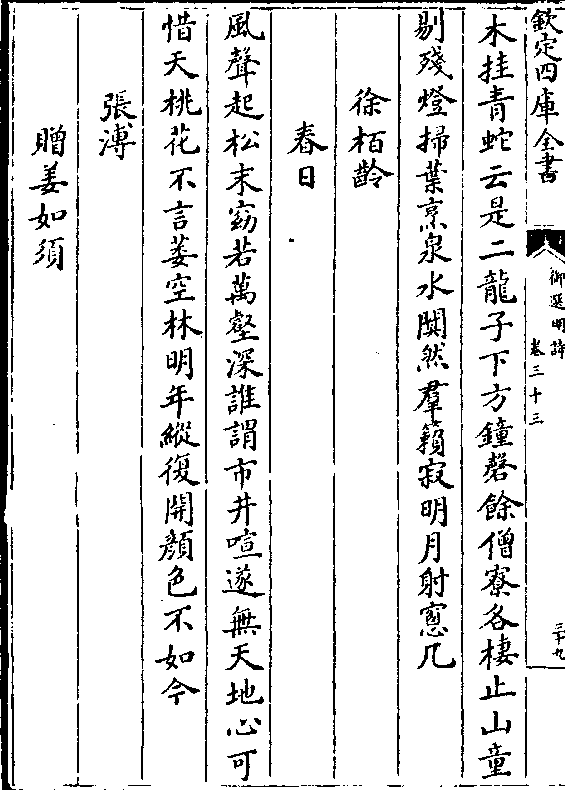 欽定四庫全書
御選明詩
卷三十三
三十九
木挂青蛇云是二龍子下方鐘磬餘僧寮各棲止山童
剔殘燈掃葉烹泉水闃然羣籟寂明月射窻几
徐栢齡
春日
風聲起松末窈若萬壑深誰謂市井喧遂無天地心可
惜夭桃花不言萎空林明年縱復開顔色不如今
張溥
贈姜如須